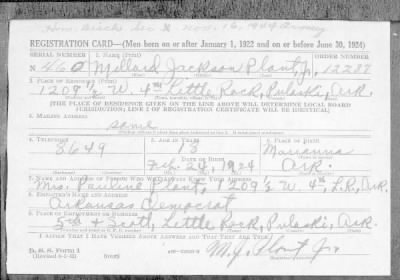 Nov. 16, 1944
REGISTRATION CARD—(Men born on or after January 1, 1922 and on or before June 30, 1924)
SERIAL NUMBER 1. NAME (Print) ORDER NUMBER
N 460 Millard Jackson Plant, Jr. 12288
2. PLACE OF RESIDENCE (Print)
1209 ½ W. 4th Little Rock, Pulaski, Ark.
[THE PLACE OF RESIDENCE GIVEN ON THE LINE ABOVE WILL DETERMINE LOCAL BOARD
JURISDICTION; LINE 2 OF REGISTRATION CERTIFICATE WILL BE IDENTICAL]
3. MAILING ADDRESS
same
4. TELEPHONE 5. AGE IN YEARS 6. PLACE OF BIRTH
8649 18 Marianna
DATE OF BIRTH
Feb. 24, 1924 Ark.
7. NAME AND ADDRESS OF PERSON WHO WILL ALWAYS KNOW YOUR ADDRESS
Mrs. Pauline Plant, 1209 ½ W. 4th, L.R., Ark.
8. EMPLOYER'S NAME AND ADDRESS
Arkansas Democrat
9. PLACE OF EMPLOYMENT OR BUSINESS
5th & Scott, Little Rock, Pulaski, Ark.
I AFFIRM THAT I HAVE VERIFIED ABOVE ANSWERS AND THAT THEY ARE TRUE.
D. S. S. Form 1
M. J. Plant Jr.